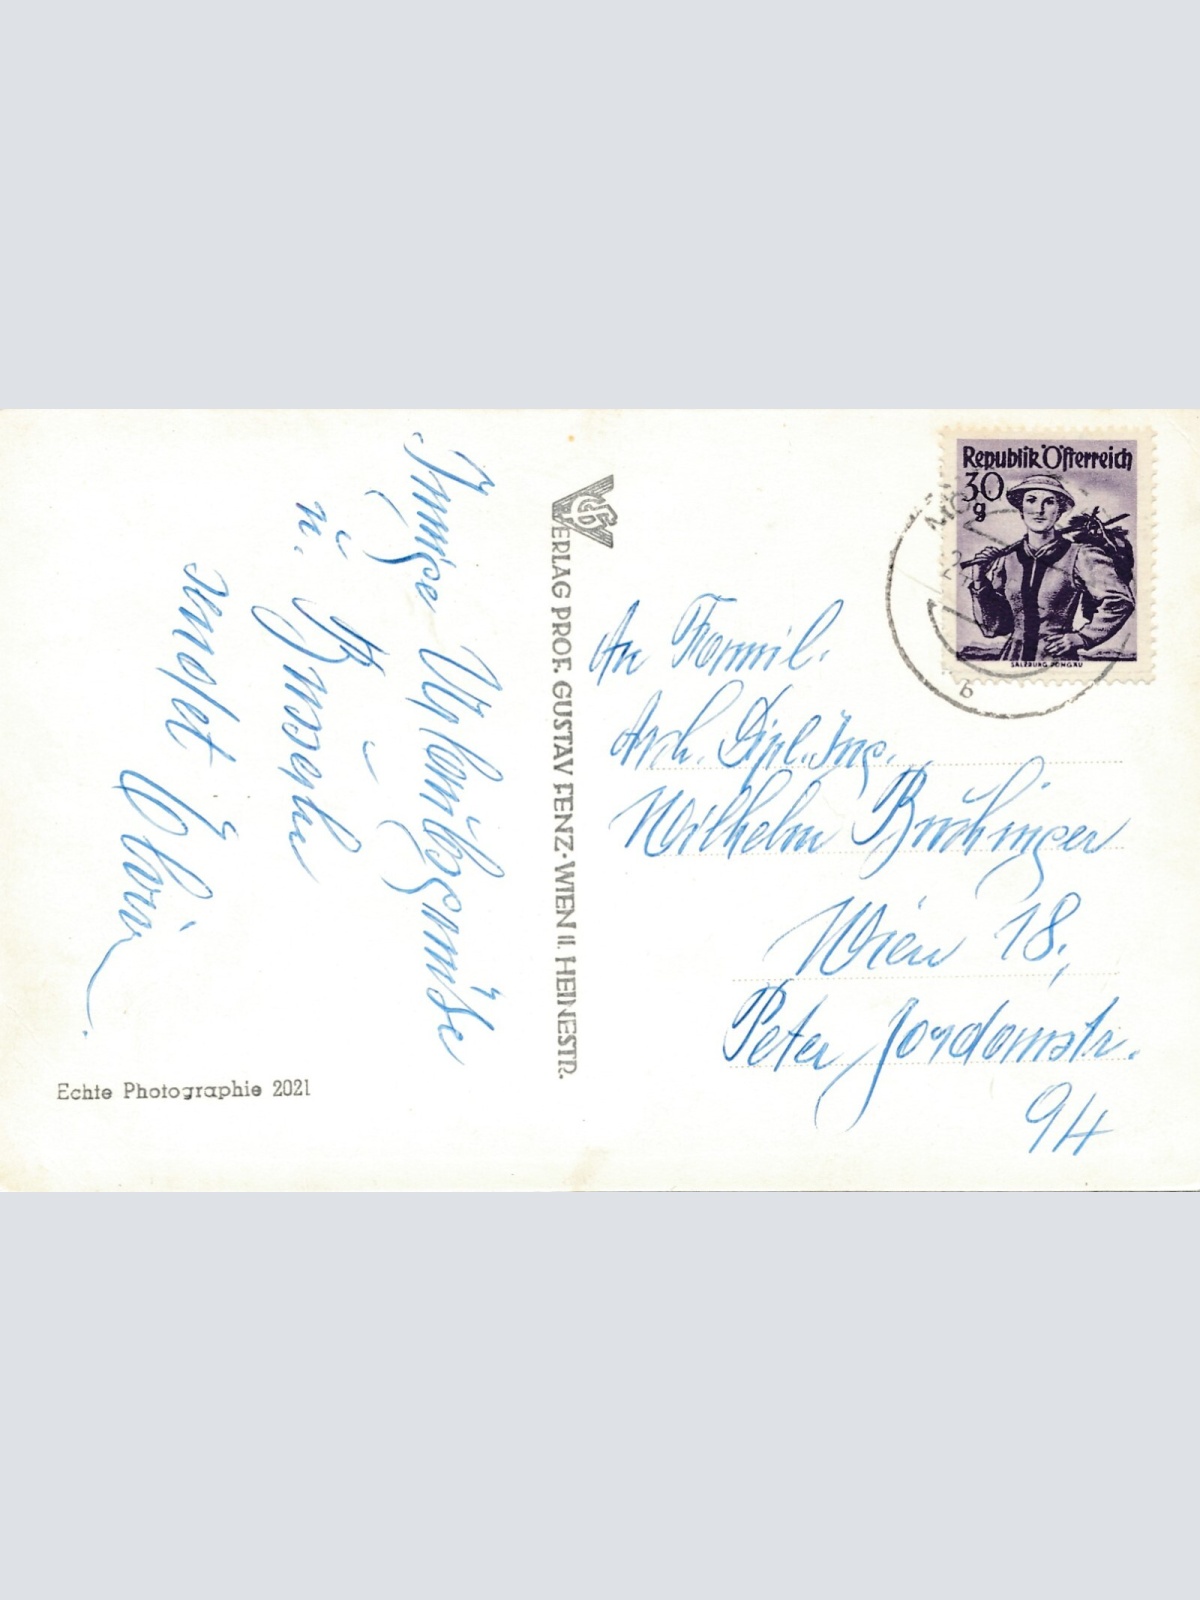 Innige Urlaubsgrüße
u. Busserln
sendet
Echte Photographie 2021
VERLAG PROF. GUSTAV FENZ-WIEN II. HEINESTR.
Republik Österreich
30
g
SALZBURG PONGAU
b
An Famil.
Arch. Dipl. Ing.
Wilhelm Bruhinger
Wien 18.,
Peter Jordanstr.
94